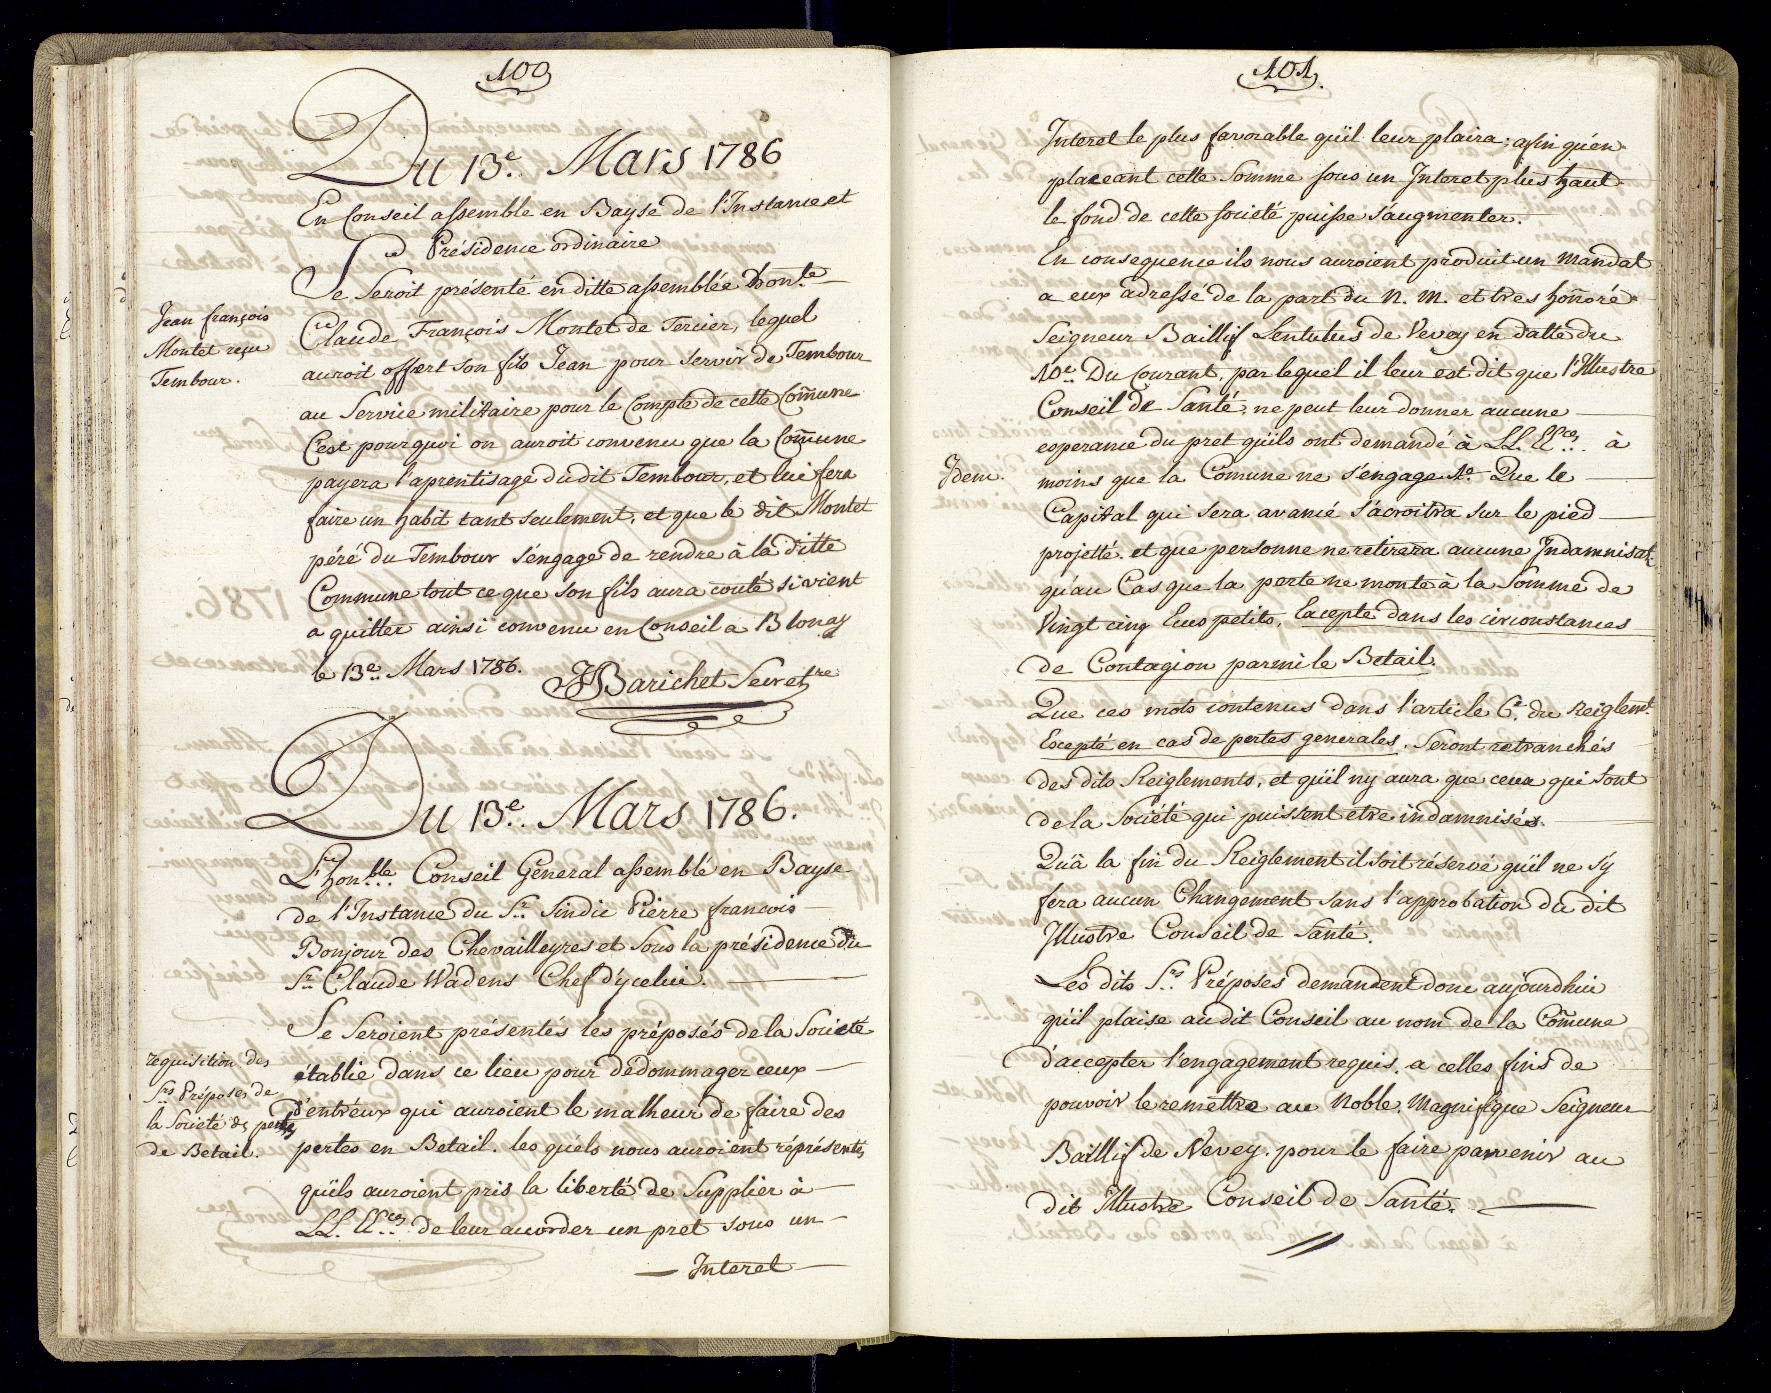 100
Du 13.e Mars 1786
En Conseil assemble en Bayse de l'Instance et
Présidence ordinaire
Se Seroit présenté en ditte assemblée Hon.te
Jean françois
Montet reçu
Tembour.
Claude François Montet de Tercier, lequel
auroit offert son fils Jean pour servir de Tembour
au Service militaire pour le Compte de cette Com̃une
C'est pourquoi on auroit convenu que la Com̃une
payera l'aprentisage dudit Tembour, et lui fera
faire un habit tant seulement, et que le dit Montet
péré du Tembour s'engage de rendre à la ditte
Commune tout ce que son fils aura couté si vient
a quitter ainsi convenu en Conseil a Blonay
le 13.e Mars 1786. Barichet Secret.re
Du 13.e Mars 1786.
L'hon.ble Conseil General assemblé en Bayse
de l'Instance du S.r Sindic Pierre francois
Bonjour des Chevailleyres et Sous la présidence du
S.r Claude Wadens Chef d'ycelui.
Se Seroient présentés les préposés de la Societé
requisition des
S.rs Préposés de
la Societé ds pertes
de Betail.
établie dans ce lieu pour dédommager ceux
d'entréux qui auroient le malheur de faire des
pertes en Betail. les quels nous auroient réprésentés
qúils auroient pris la liberté de Supplier à
LL. EE.ces de leur accorder un pret sous un
Interet
101.
Interet le plus favorable qúil leur plaira; afin qúen
placeant cette Somme sous un Interet plus haut
le fond de cette societé puisse s'augmenter.
En consequence ils nous auroient produit un mandat
a eux adressé de la part du N. M. et tres hoñoré
Seigneur Baillif Lentulus de Vevey en datte du
10.e Du Courant, par lequel il leur est dit que l'Illustre
Conseil de Santé, ne peut leur donner aucune
esperance du pret qúils ont demandé à LL. EE.ces à
Idem.
moins que la Comune ne s'engage 1.o Que le
Capital qui sera avancé s'acroitra sur le pied
projetté. et que personne ne retirera aucune Indamnisat.
qu'au Cas que la perte ne monte à la Somme de
Vingt cinq Ecus petits, Excepté dans les circonstances
de Contagion parmi le Betail.
Que ces mots contenus dans l'article 6.e du Reiglem.t
Excepté en cas de pertes generales. Seront retranchés
des dits Reiglements, et qúil ny aura que ceux qui sont
de la Societé qui puissent etre indamnisés.
Qúà la fin du Reiglement il soit réservé qúil ne s'y
fera aucun Changement sans l'approbation du dit
Illustre Conseil de Santé.
Les dits S.rs Préposés demandent donc aujourdhui
qúil plaise audit Conseil au nom de la Com̃une
d'accepter l'engagement requis, a celles fins de
pouvoir le remettre au Noble, Magnifique Seigneur
Baillif de Vevey. pour le faire parvenir au
dit Illustre Conseil de Santé.